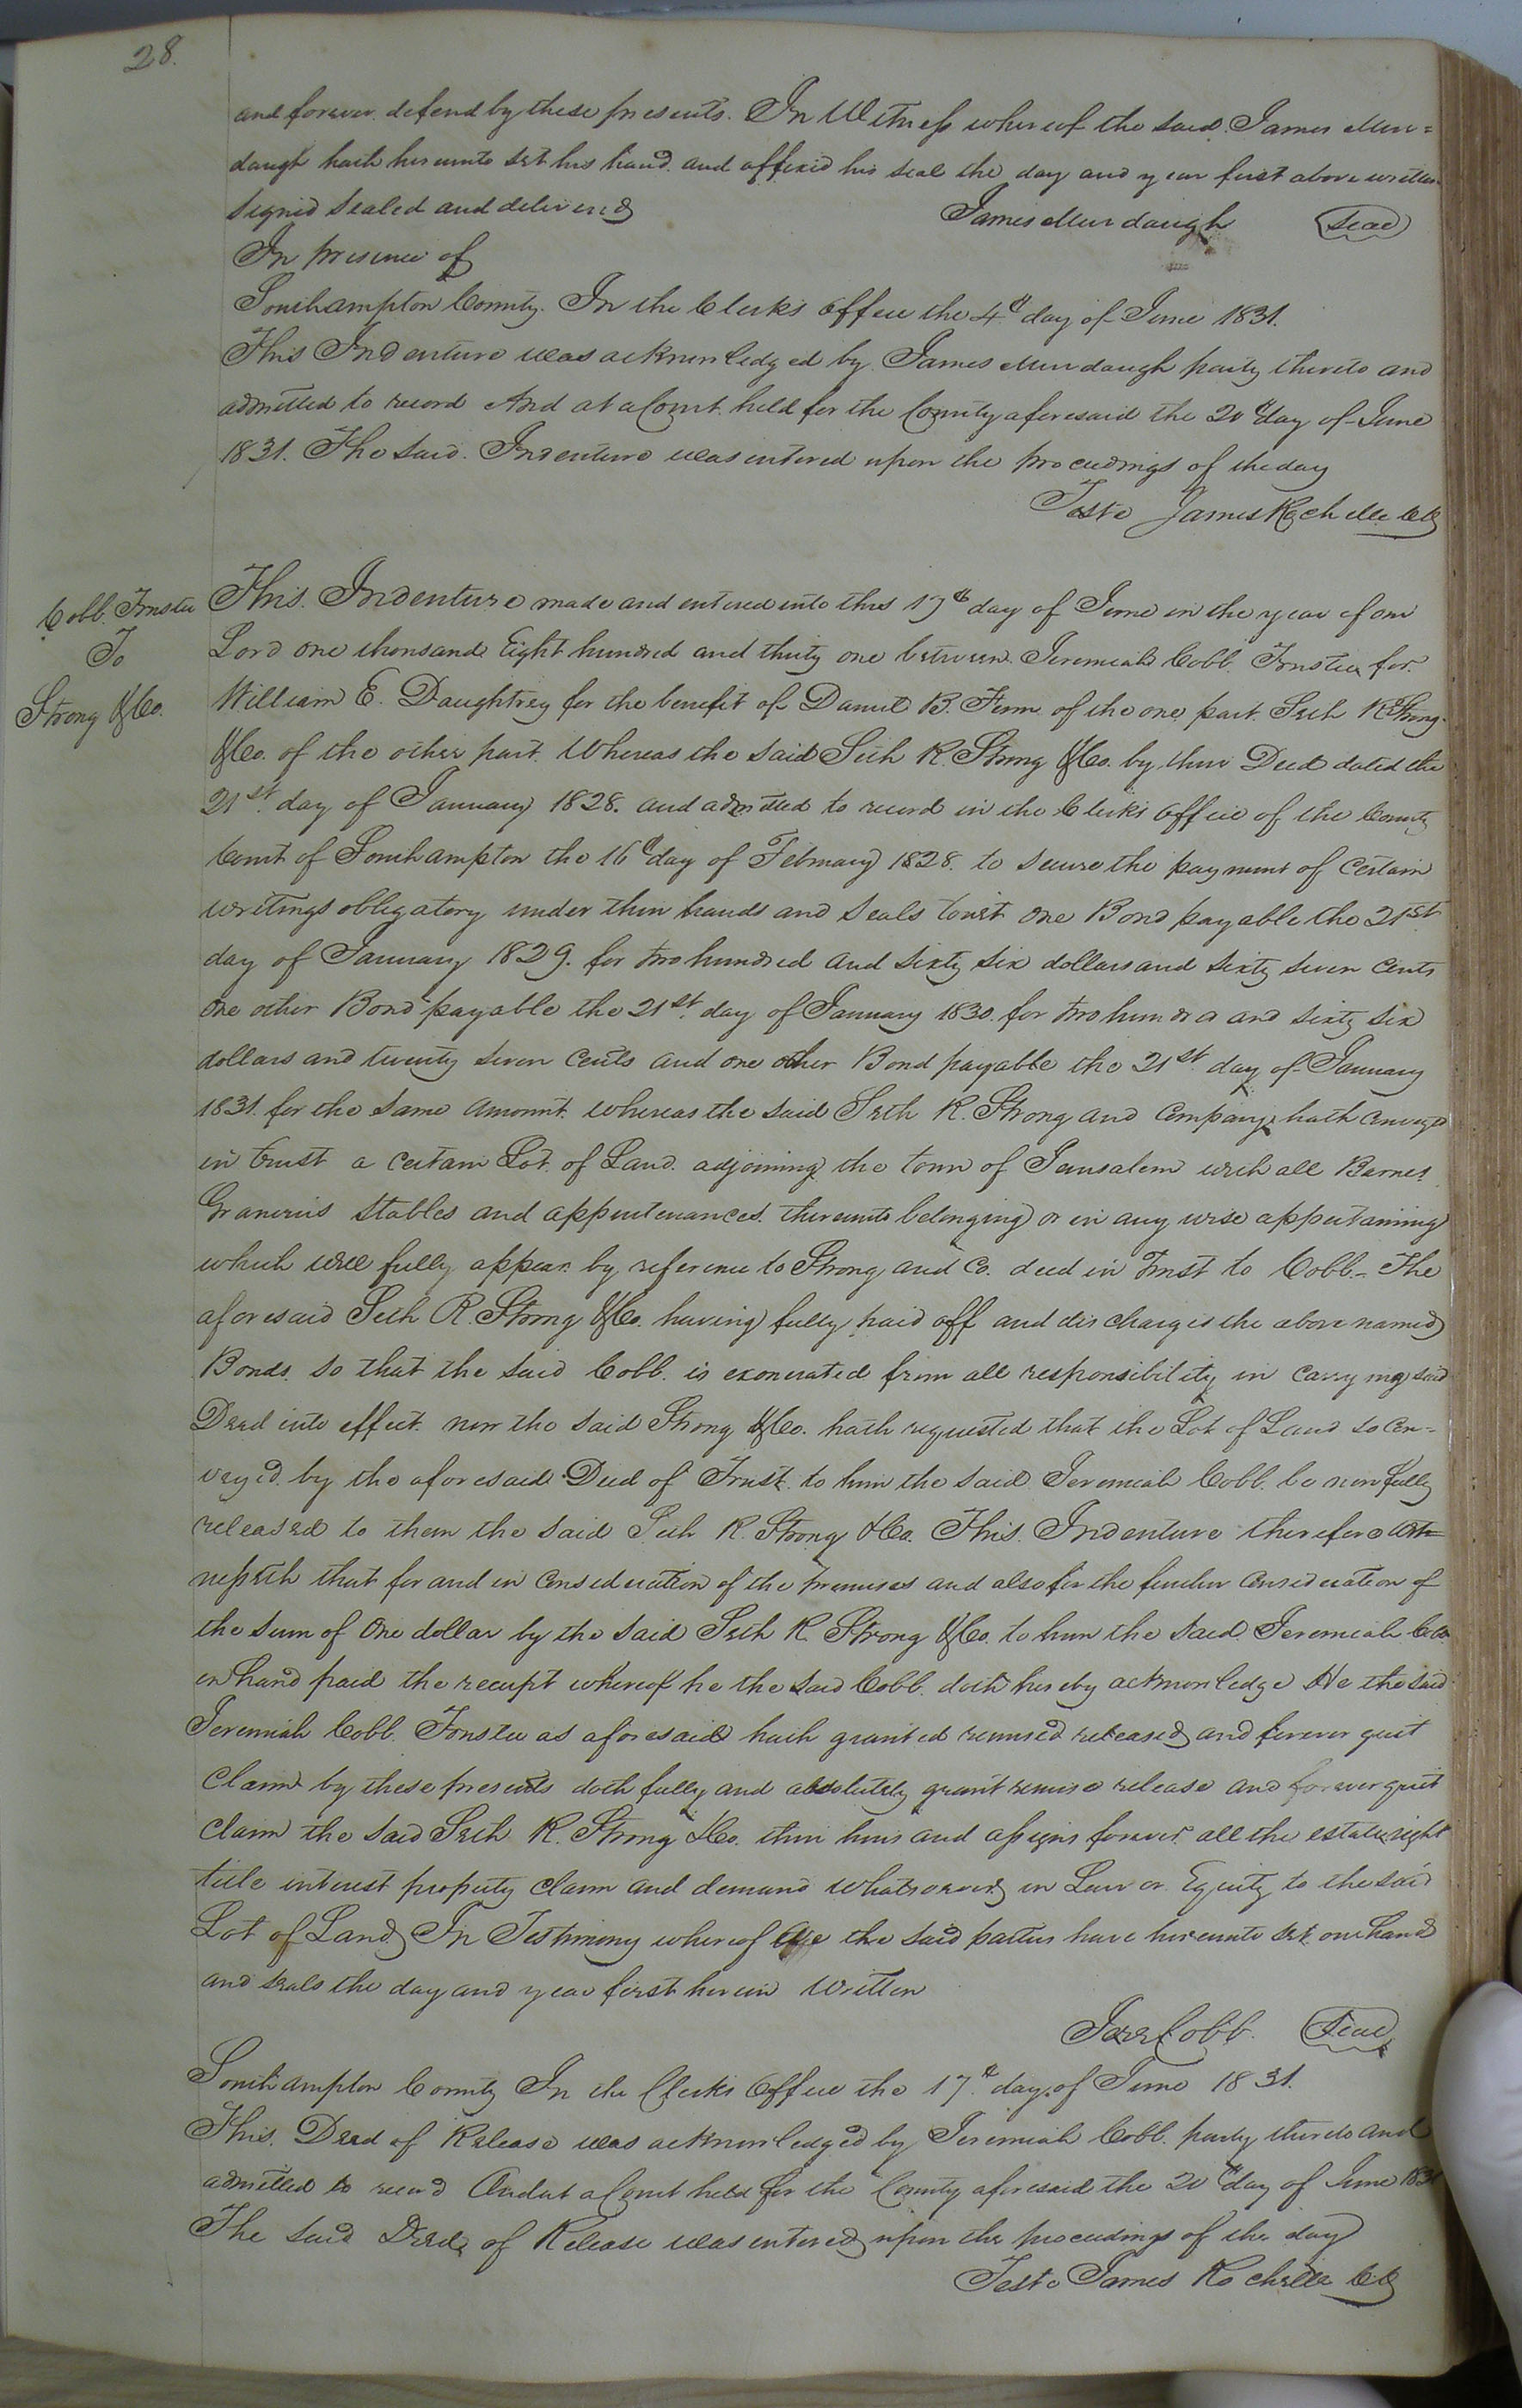 28.
and forever defend by these presents. In Witness whereof the said James Mur=
daugh hath hereunto set his hand and affixed his seal the day and year first above written
Signed Sealed and delivered
James Murdaugh Seal
In presence of
Southampton County. In the Clerks office the 4th day of June 1831.
This Indenture was acknowledged by James Murdaugh party thereto and
admitted to record And at a Court held for the County aforesaid the 20th day of June
1831. The said Indenture was entered upon the proceedings of the day
Teste James Rochelle CC
Cobb Trustee
To
Strong &Co.
This Indenture made and entered into this 17th day of June in the year of our
Lord one thousand Eight hundred and thirty one between Jeremiah Cobb Trustee for
William E. Daughtrey for the benefit of Daniel B. of the one part Seth R Strong
&Co. of the other part. Whereas the said Seth R. Strong &Co. by their Deed dated the
21st day of January 1828. and admitted to record in the Clerks office of the County
Court of Southampton the 16th day of February 1828. to secure the payment of certain
writings obligatory under their hands and seals towit one Bond payable the 21st
day of January 1829. for two hundred and sixty six dollars and sixty seven cents
one other Bond payable the 21st day of January 1830. for two hundred and sixty six
dollars and twenty seven cents and one other Bond payable the 21st day of January
1831. for the same amount. whereas the said Seth R. Strong and Company hath conveyed
in trust a certain Lot of Land adjoining the town of Jerusalem with all Barnes
Graneries stables and appurtenances thereunto belonging or in any wise appertaining
which will fully appear by reference to Strong and Co. deed in Trust to Cobb – The
aforesaid Seth R. Strong &Co. having fully paid off and discharged the above named
Bonds so that the said Cobb is exonerated from all responsibility in carrying said
Deed into effect. now the said Strong &Co. hath requested that the Lot of Land so con-
veyed by the aforesaid Deed of Trust to him the said Jeremiah Cobb be now fully
released to them the said Seth R. Strong &Co. This Indenture therefore Wit=
nesseth that for and in consideration of the premises and also for the further consideration of
the sum of One dollar by the said Seth R. Strong &Co. to him the said Jeremiah Cobb
in hand paid the receipt whereof he the said Cobb doth hereby acknowledge He the said
Jeremiah Cobb Trustee as aforesaid hath granted remised released and forever quit
Claim by these presents doth fully and absolutely grant remise release and forever quit
Claim the said Seth R. Strong &Co. their heirs and assigns forever all the estate right
title interest property claim and demand whatsoever in Law or Equity to the said
Lot of Land In Testimony whereof We the said parties have hereunto set our hand
and seals the day and year first herein Written
Jere Cobb. Seal
Southampton County In the Clerks Office the 17th day of June 1831.
This Deed of Release was acknowledged by Jeremiah Cobb party thereto and
admitted to record And at a Court held for the County aforesaid the 20th day of June 1831
The said Deed of Release was entered upon the proceedings of the day
Teste James Rochelle CC